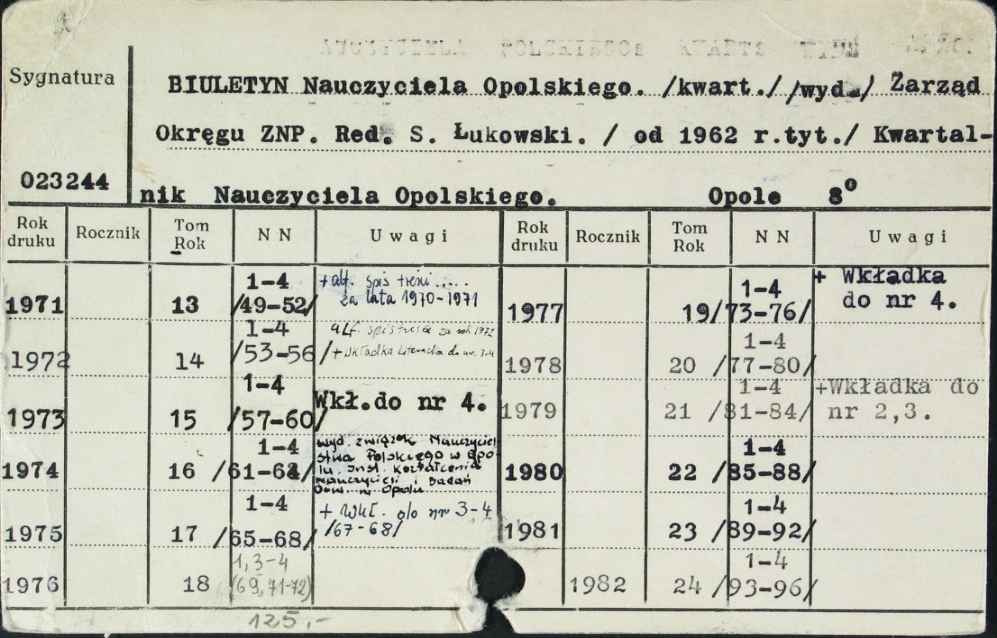 Sygnatura
BIULETYN Nauczyciela Opolskiego. /kwart./ /wyd./ Zarząd
Okręgu ZNP. Red. S. Łukowski. / od 1962 r.tyt./ Kwartal-
023244
nik Nauczyciela Opolskiego. Opole 8º
Rok druku Rocznik Tom Rok NN Uwagi Rok druku Rocznik Tom Rok NN Uwagi
1971 13 1-4 /49-52/ +alf. spis treści..... za lata 1970-1971
1972 14 1-4 /53-56/ alf. spis treści za rok 1972 + wkładka Literacka do nr. 3-4
1973 15 1-4 /57-60/ Wkł.do nr 4.
1974 16 1-4 /61-64/ wyd. związek Nauczycielstwa Polskiego w Opolu. Inst. kształcenia Nauczycieli i Badań Ośw. w Opolu
1975 17 1-4 /65-68/ + Wkł. do nr 3-4 /67-68/
1976 18 1,3-4 (69,71-72)
1977 19 1-4 /73-76/ + Wkładka do nr 4.
1978 20 1-4 /77-80/
1979 21 1-4 /81-84/ +Wkładka do nr 2,3.
1980 22 1-4 /85-88/
1981 23 1-4 /89-92/
1982 24 1-4 /93-96/
125,-